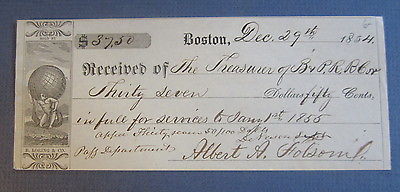 $37,50 Boston, Dec. 29th 1854.
Received of The Treasurer of B & P. R. R. Co
Thirty Seven Dollars fifty Cents,
in full for services to Jany 1st 1855
Thirty seven 50/100
Pass Department Albert A. Folsom
SOLD BY
B. LORING & CO.